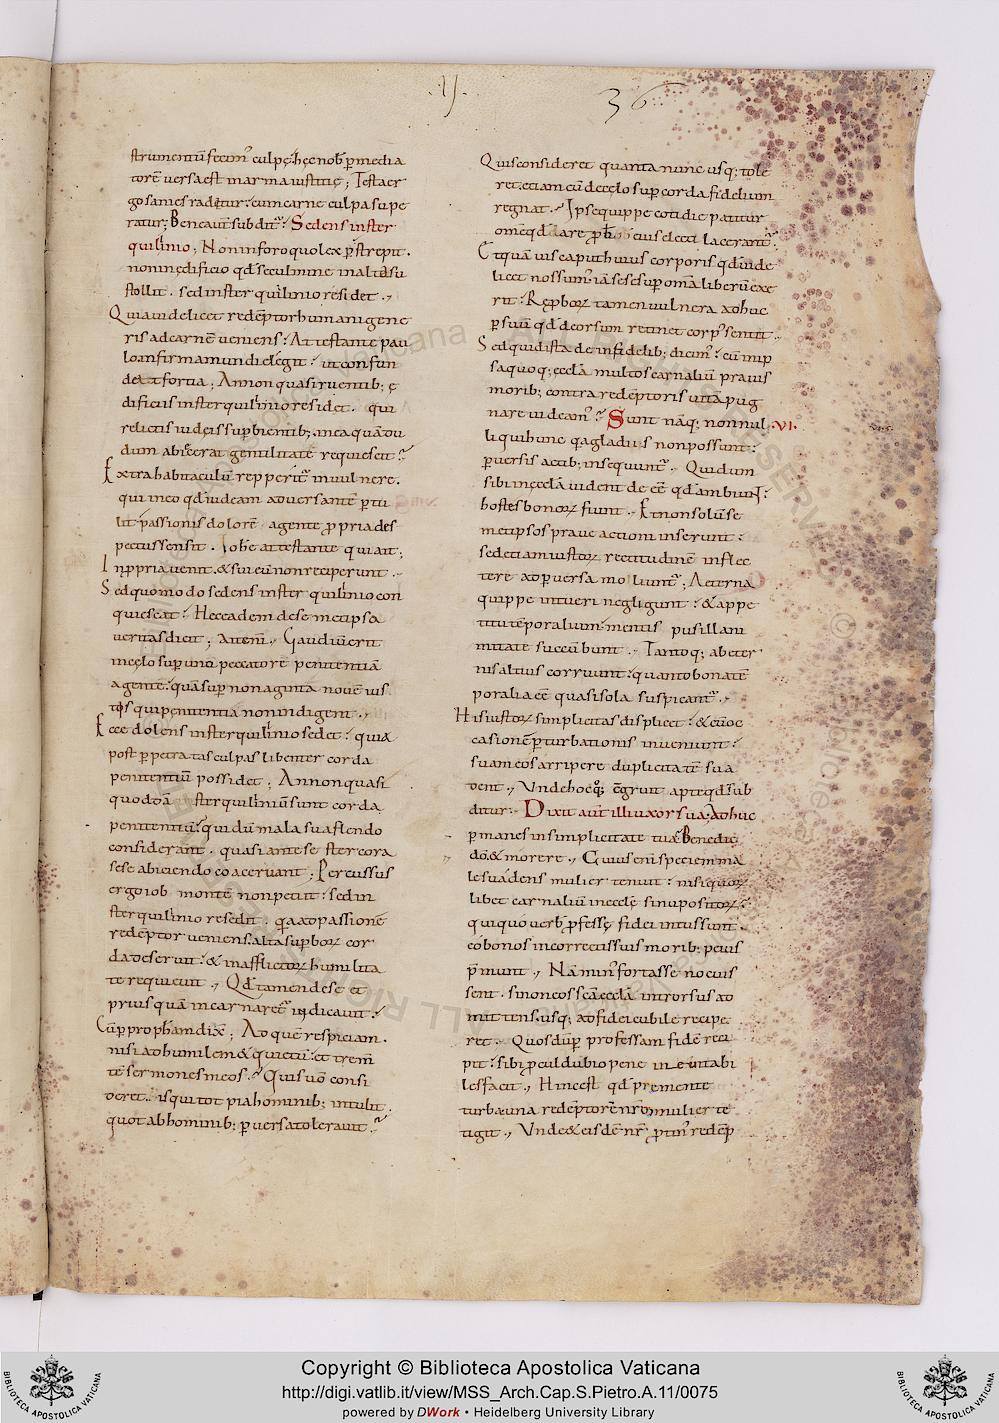 .IJ. 36
strumentū fecim᷑ culpę. hęc nob̄ p̱ media
torē versa est in arma iustitię; Testa er
go sanies raditur. cum carne culpa supe
ratur; Bene aut̄ subdit᷑. Sedens in ster
quilinio; Non in foro quo lex p̱strepit.
non in ędificio qd̄ se culmine in altū su
stollit. sed in sterquilinio residet.,
Quia videlicet redēptor humani gene
ris ad carnē veniens. Attestante pau
lo infirma mundi elegit. ut confun
deret fortia; An non quasi ruentib; ę
dificiis in sterquilinio residet. qui
relictis iudęis sup̱bientib; in ea quā diu
dum abiecerat gentilitatē requiescit?
Extra habitaculū repperit᷑ in vulnere.
qui in eo qd̄ iudeam adversantē p̱tu
lit. passionis dolorē agente p̱pria des
pectus sensit. Iohē attestante qui ait;
In p̱pria venit. & sui eū non receperunt.,
Sed quomodo sedens in sterquilinio con
quiescat. Hec eadem de se met ipsa
veritas dicit; Atten᷑., Gaudiū erit
in cęlo sup̱ uno peccatorē penitentiā
agentē. quā sup̱ nonaginta novē ius
tos qui penitentia non indigent.,
Ecce dolens in sterquilinio sedet. quia
post p̱petratas culpas libenter corda
penitentiū possidet; An non quasi
quoddā sterquiliniū sunt corda
penitentiū. qui dū mala sua flendo
considerant. quasi ante se stercora
sese abiciendo coacervant; Percussus
ergo iob montē non petiit. sed in
sterquilinio resedit. q̱a ad passionē
redēptor veniens. alta sup̱borꝝ cor
da deseruit. & in afflictorꝝ humilita
te requievit., Qd̄ tamen de se et
prius quā incarnaret᷑ indicavit.
Cū p̱ prophām dix̄; Ad quē respiciam.
nisi ad humilem & quietū. et tremē
tē sermones meos. Quis vō consi
deret. is qui tot pia hominib; intulit.
quot ab hominib; p̱versa toleravit.
Quis consideret quanta nunc usq; tole
ret. etiam cū de cęlo sup̱ corda fidelium
regnat. Ipse quippe cotidie patitur
omē qd̄ a re p̱bis eius electi lacerant᷑.
Et quā vis caput huius corporis qd̄ vide
licet nos sum᷑. iā se se sup̱ omā liberū exe
rit. Rep̱borꝝ tamen vulnera adhuc
p̱ suū qd̄ deorsum retinet corp᷑ sentit.,
Sed quid ista de infidelib; dicim᷑. cū in ip̄
sa quoq; ecclā multos carnaliū pravis
morib; contra redēptoris vitā pug
nare videam᷑? Sunt nāq; nonnul .VI.
li qui hunc q̱a gladiis non possunt.
p̱versis actib; insequunt᷑., Qui dum
sibi in ęcclā vident deēē qd̄ ambiunt.
hostes bonorꝝ fiunt., Et non solū se
metipsos prave actioni inserunt.
sed etiam iustorꝝ rectitudinē inflec
tere ad p̱versa moliunt᷑; Aeterna
quippe intueri negligunt. & appe
titu tēporalium mentis pusillani
mitate succūbunt., Tantoq; ab eter
nis altius corruunt. quanto bona tē
poralia eē quasi sola suspicant᷑.,
His iustorꝝ simplicitas displicet. & cū oc
casionē p̱turbationis inveniunt.
suam eos arripere duplicitatē sua
dent., Unde hoc quoq; cōgruit apte qd̄ sub
ditur. Dixit aut̄ illi uxor sua; Adhuc
p̱manes in simplicitate tua? Benedic
dō. & morere., Cuius eni speciem ma
le suadens mulier tenuit. nisi quorꝝ
libet carnaliū in ecclę sinu positorꝝ.
qui quo verbū p̱fessę fidei intus sunt.
eo bonos incorrectis suis morib; peius
p̱munt., Nā min᷑ fortasse nocuis
sent. si non eos scā ecclā introrsus ad
mittens. usq; ad fidei cubile recipe
ret., Quos dū p̱ professam fidē reci
pit. sibi p̱culdubio pene inevitabi
les facit., Hinc est qd̄ premente
turba una redēptorē nr̄m mulier te
tigit., Unde & eisdē nr̄ p̱tin᷑ redēp
Copyright © Biblioteca Apostolica Vaticana
http://digi.vatlib.it/view/MSS_Arch.Cap.S.Pietro.A.11/0075
powered by DWork • Heidelberg University Library
BIBLIOTECA APOSTOLICA VATICANA
BIBLIOTECA APOSTOLICA VATICANA